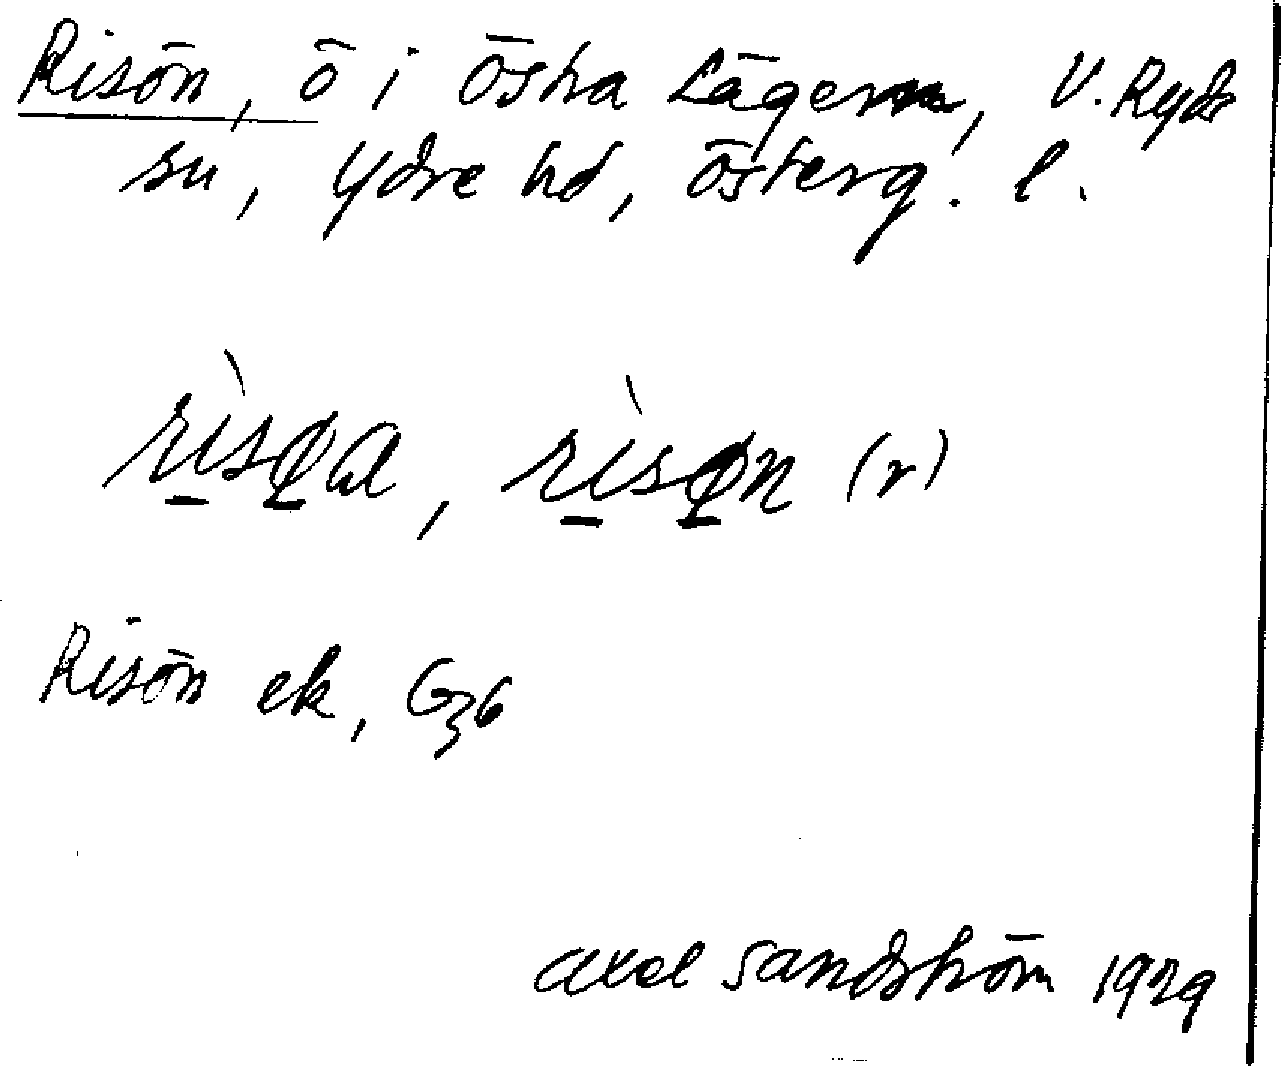 Risön, ö i Östra Lägern, V. Ryds
sn, Ydre hd, Österg. l.
rìsøa, rìsøn (r)
Risön ek, G36
Axel Sandström 1929